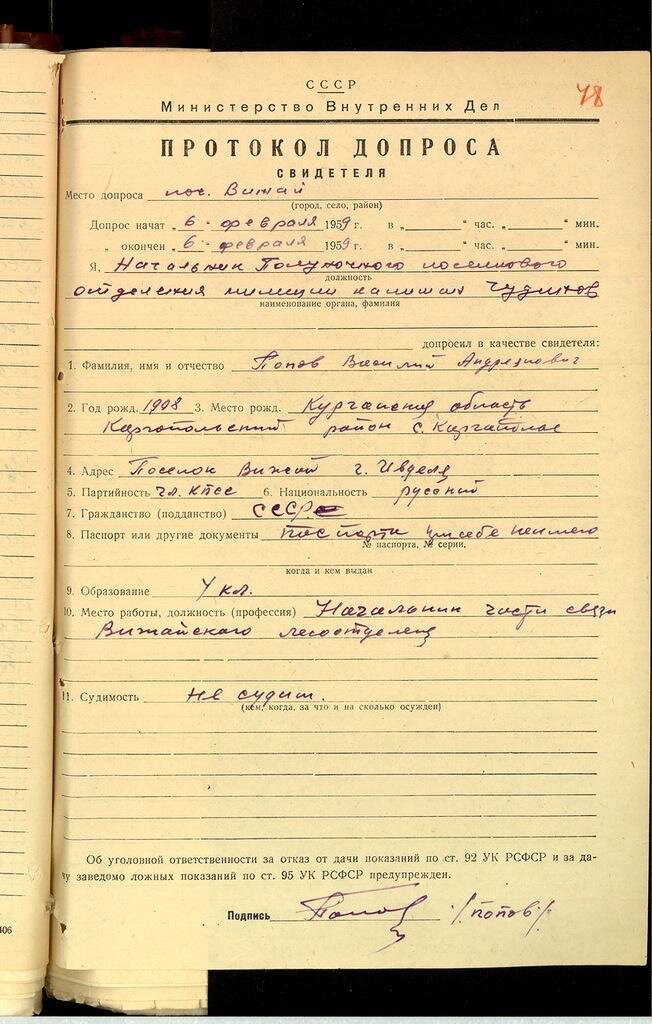 СССР
48
Министерство Внутренних Дел
ПРОТОКОЛ ДОПРОСА
СВИДЕТЕЛЯ
Место допроса пос. Вижай
(город, село, район)
Допрос начат „ 6 “ февраля 1959 г. в „ “ час. „ “ мин.
„ окончен „ 6 “ февраля 1959 г. в „ “ час. „ “ мин.
Я, Начальник Полуночного поселкового
должность
отделения милиции капитан Чудинов
наименование органа, фамилия
допросил в качестве свидетеля:
1. Фамилия, имя и отчество Попов Василий Андреянович
2. Год рожд. 1908 3. Место рожд. Курганская область
Каргопольский район с.
4. Адрес Поселок Вижай г. Ивделя
5. Партийность чл. КПСС 6. Национальность русский
7. Гражданство (подданство) СССР
8. Паспорт или другие документы Паспорта при себе неимею
№ паспорта, № серии,
когда и кем выдан
9. Образование 4 кл.
10. Место работы, должность (профессия) Начальник части связи
Вижайского
11. Судимость не судим.
(кем, когда, за что и на сколько осужден)
Об уголовной ответственности за отказ от дачи показаний по ст. 92 УК РСФСР и за да-
чу заведомо ложных показаний по ст. 95 УК РСФСР предупрежден.
Подпись Попов /Попов/.
406